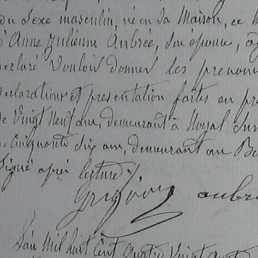 du sexe masculin, né en sa Maison, ce M
d'Anne Julienne Aubrée, son épouse, âg
déclaré vouloir donner les prénoms
déclaration et présentation faites en pré
de Vingt Neuf ans, demeurant à Noyal Sur
de Cinquante six ans, demeurant au B
signé après lecture
aubré
L'an Mil huit Cent Quatre Vingt